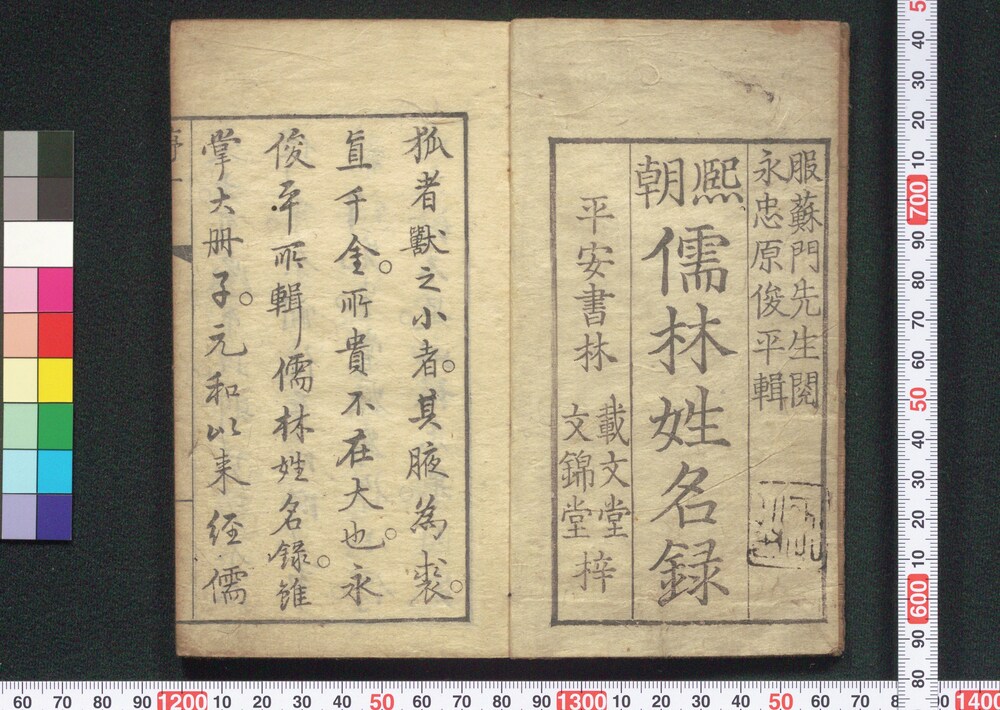 服蘇門先生閲
永忠原俊平輯
熙朝
儒林姓名録
平安書林
載文堂
文錦堂
梓
狐者獸之小者。其腋為裘。
直千金。所貴不在大也。永
俊平所輯儒林姓名録。雖
掌大册子。元和以来経儒
50
40
30
20
10
700
90
80
70
60
50
40
30
20
10
600
90
80
60
70
80
90
1200
10
20
30
40
50
60
70
80
90
1300
10
20
30
40
50
60
70
80
90
1400